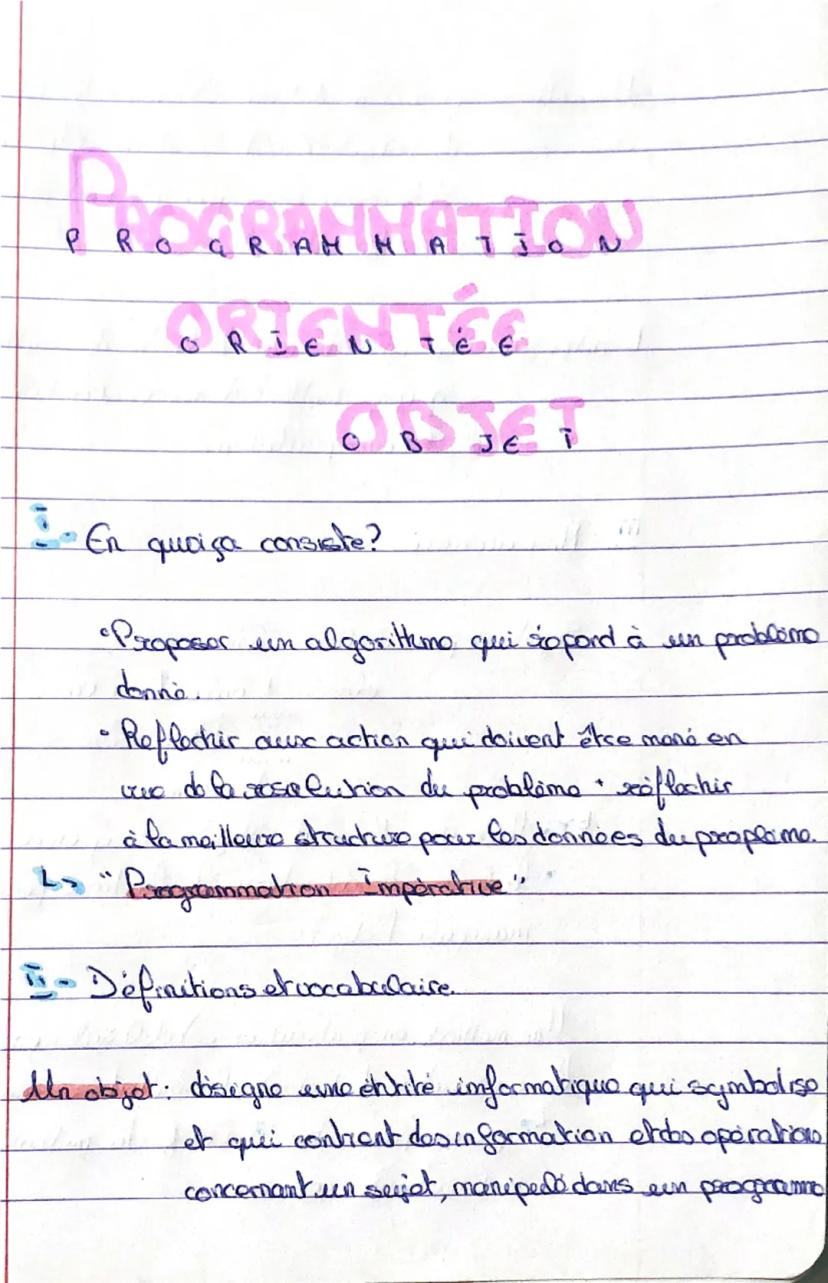 PROGRAMMATION
PROGRAMMATION
ORIENTÉE
ORIENTÉE
OBJET
OBJET
I- En quoi ça consiste?
• Proposer un algorithme qui répond à un problème
donné.
• Reflechir aux action qui doivent être mené en
vue de la resolution du problème + réflechir
à la meilleure structure pour les données du proplème.
↳ "Programmation Impérative"
II- Définitions et vocabulaire.
Un objet: désigne une entité imformatique qui symbolise
et qui contient des information et des opérations
concernant un sujet, manipulé dans un programme